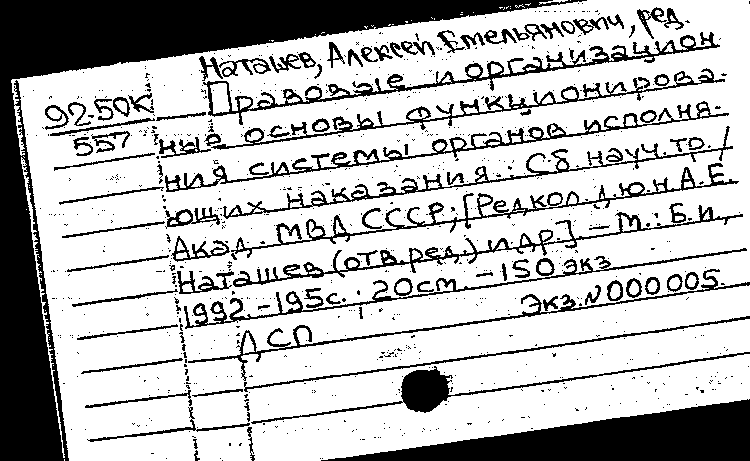 Наташев, Алексей Емельянович, ред.
92-50К Правовые и организацион
557 ные основы функционирова-
ния системы органов исполня-
ющих наказания.: Сб. науч. тр. /
Акад. МВД СССР; [Редкол. д.ю.н. А.Е.
Наташев (отв. ред.) и др.] – М.: Б.и.,
1992. – 195с.; 20см. – 150 экз
Экз. N 000005.
ДСП